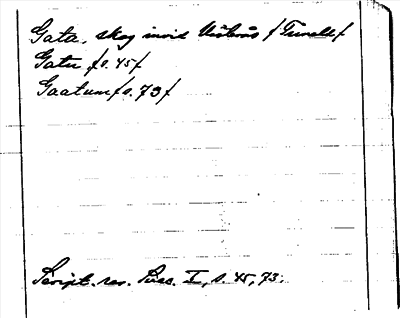 Gata, skog invid Västerås /Tuneld/
Gatu /s. 45/
Gaatum /s. 73/
Script. rer. Suec. I, s. 45, 73.